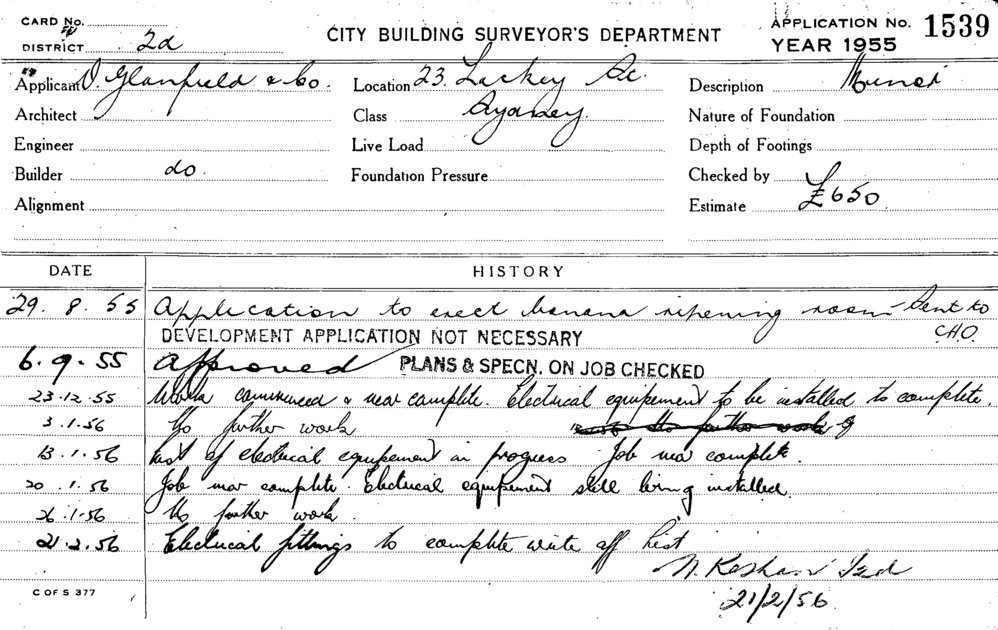 CARD No.
DISTRICT 2d
CITY BUILDING SURVEYOR'S DEPARTMENT
APPLICATION No. 1539
YEAR 1955
Applicant D. Glanfield & Co. Location 23 Lackey Description
Architect Class Sydney Nature of Foundation
Engineer Live Load Depth of Footings
Builder do. Foundation Pressure Checked by
Alignment Estimate £650
DATE HISTORY
29. 8. 55 Application to erect banana ripening room sent to
C.H.O.
DEVELOPMENT APPLICATION NOT NECESSARY
6. 9. 55 Approved PLANS & SPECN. ON JOB CHECKED
23.12.55 Work commenced & near complete. Electrical equipement to be installed to complete.
3.1.56 No further work
13.1.56 of electrical equipement in progress Job near complete.
20.1.56 Job near complete. Electrical equipement still being installed.
26.1.56 No further work.
21.2.56 Electrical fittings to complete write off list
21/2/56
C OF S 377